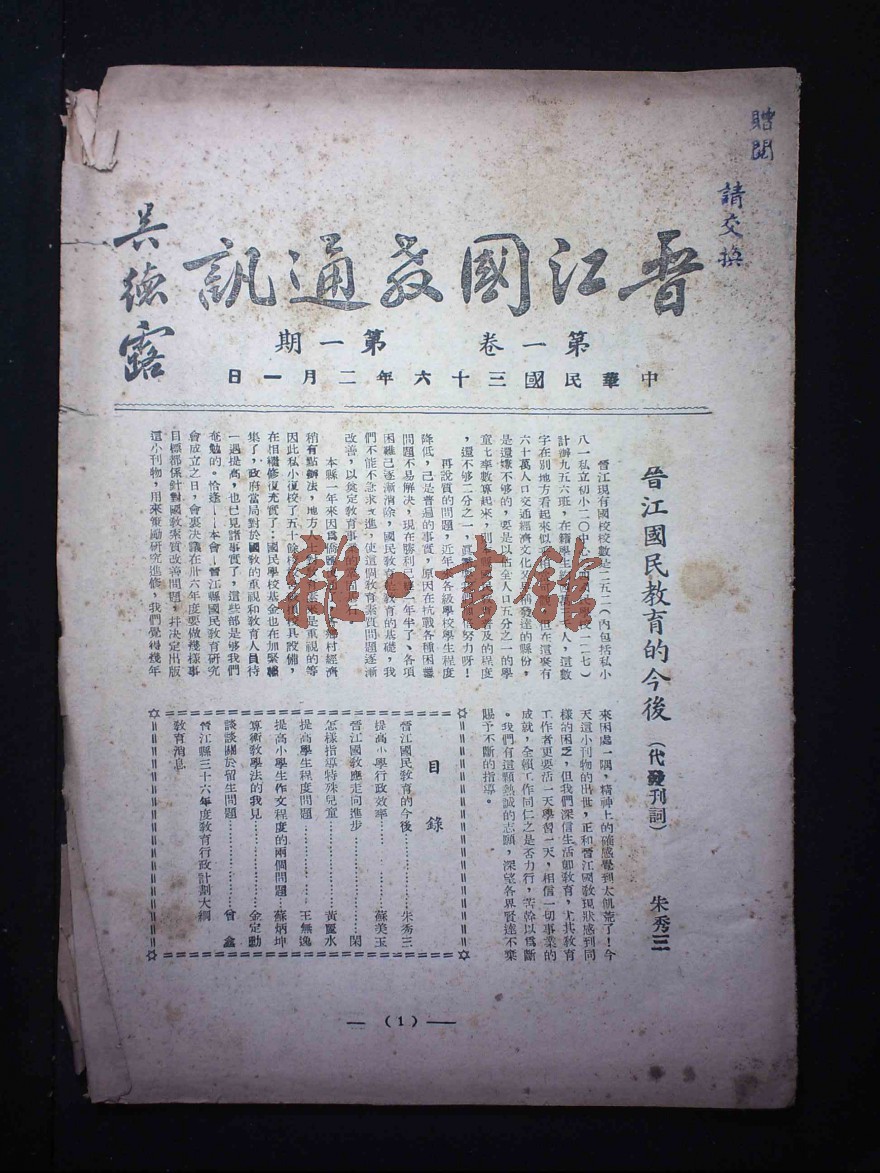 贈閱
請交換
晉江國教通訊
吳德露
第一卷 第一期
中華民國三十六年二月一日
晉江國民教育的今後(代發刊詞)
朱秀三
晉江現有國校校數是二五二(內包括私小
八一私立初小二〇中
計辦九五六班,在籍學生
字在別地方看起來似
六十萬人口交通經濟文化
是還嫌不够的,要是以佔全人口五分之一的學
童七率數算起來,則
,還不够二分之一,
再說質的問題,近年
降低,已是普遍的事實,原因在抗戰各種困難
問題不易解決,現在勝利
困難已逐漸消除,國民教育
們不能不急求改進,使這個教育素質問題逐漸
改善,以奠定教育事業的
本縣一年來因為僑匯
稍有點辦法,地方人士
因此私小復校了五十餘校
在相繼修復充實了:國民學校基金也在加緊籌
集了,政府當局對於國教的重視和教育人員待
一遇提高,也已見諸事實了,這些都是够我們
奮勉的。恰逢——本會——晉江縣國民教育研究
會成立之日,會裏決議在卅六年度要做幾樣事
目標都係針對國教素質改善問題,并決定出版
這小刊物,用來策勵研究進修,我們覺得幾年
來困處一隅,精神上的確感覺到太飢荒了!今
天這小刊物的出世,正和晉江國教現狀感到同
樣的困乏,但我們深信生活卽教育,尤其教育
工作者更要活一天學習一天,相信一切事業的
成就,全賴工作同仁之是否力行,苦幹以為斷
。我們有這顆熱誠的志願,深望各界賢達不棄
賜予不斷的指導。
目錄
晉江國民教育的今後……朱秀三
提高小學行政效率……蘇美玉
晉江國教應走向進步……閑
怎樣指導特殊兒童……黃璽水
提高學生程度問題……王無逸
提高小學生作文程度的兩個問題…蘇炳坤
算術教學法的我見……金定勳
談談關於留生問題……曾鑫
晉江縣三十六年度教育行政計劃大綱
教育消息
—(1)—
雜·書館